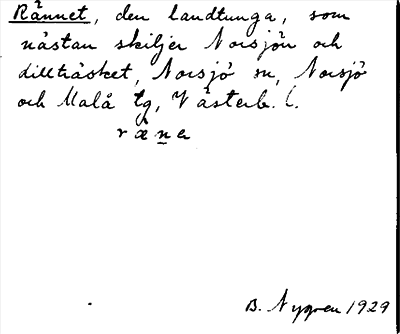 Rännet, den landtunga, som
nästan skiljer Norsjön och
dillträsket, Norsjö sn, Norsjö
och Malå tg, Västerb. l.
ræne
B. Nygren 1929